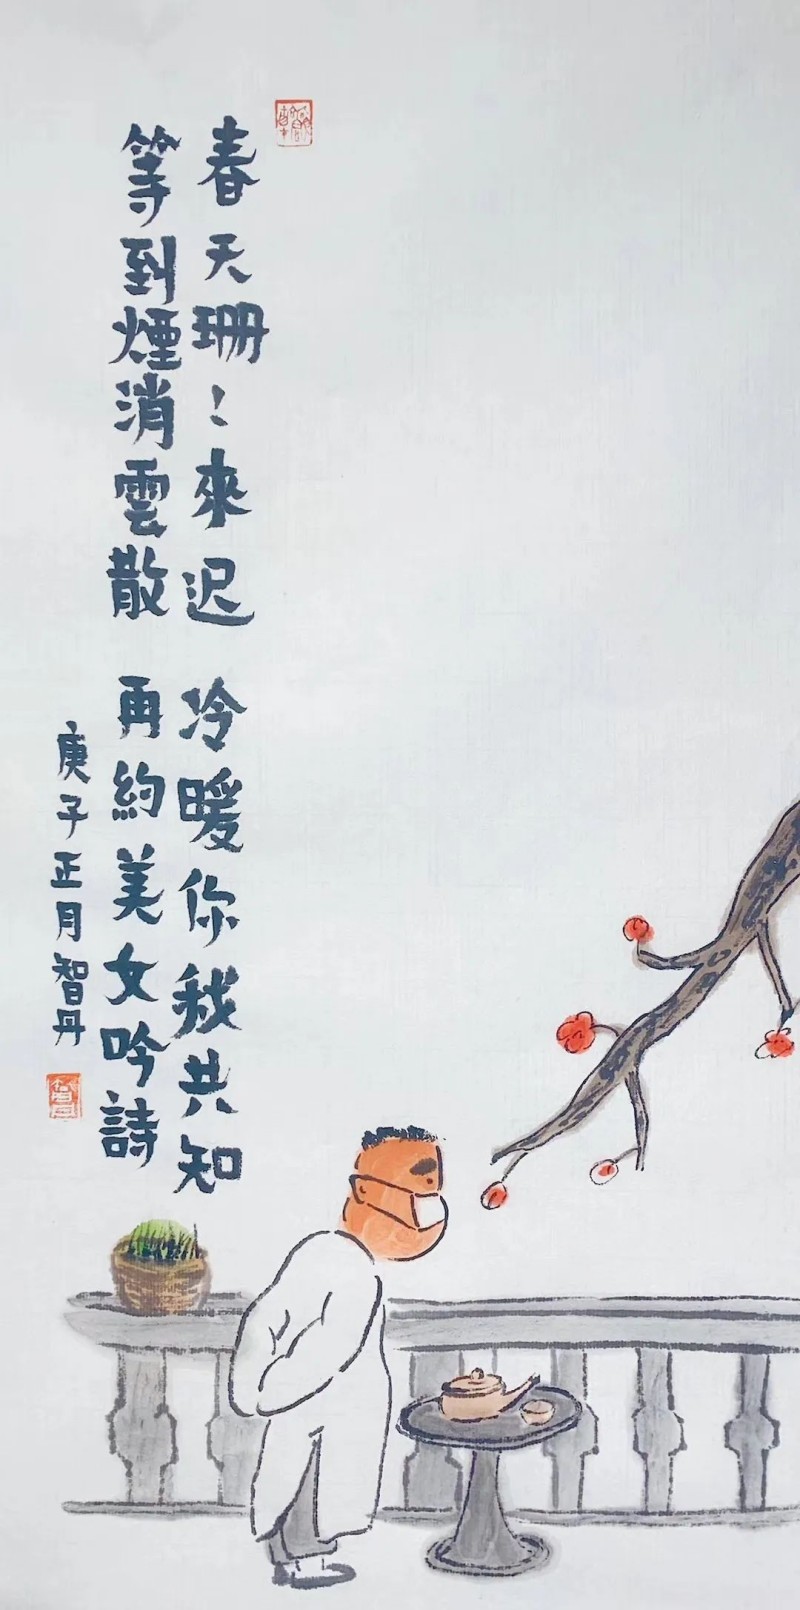 春天珊〻來迟 冷暖你我共知
等到煙消雲散 再約美女吟詩
庚子正月智丹